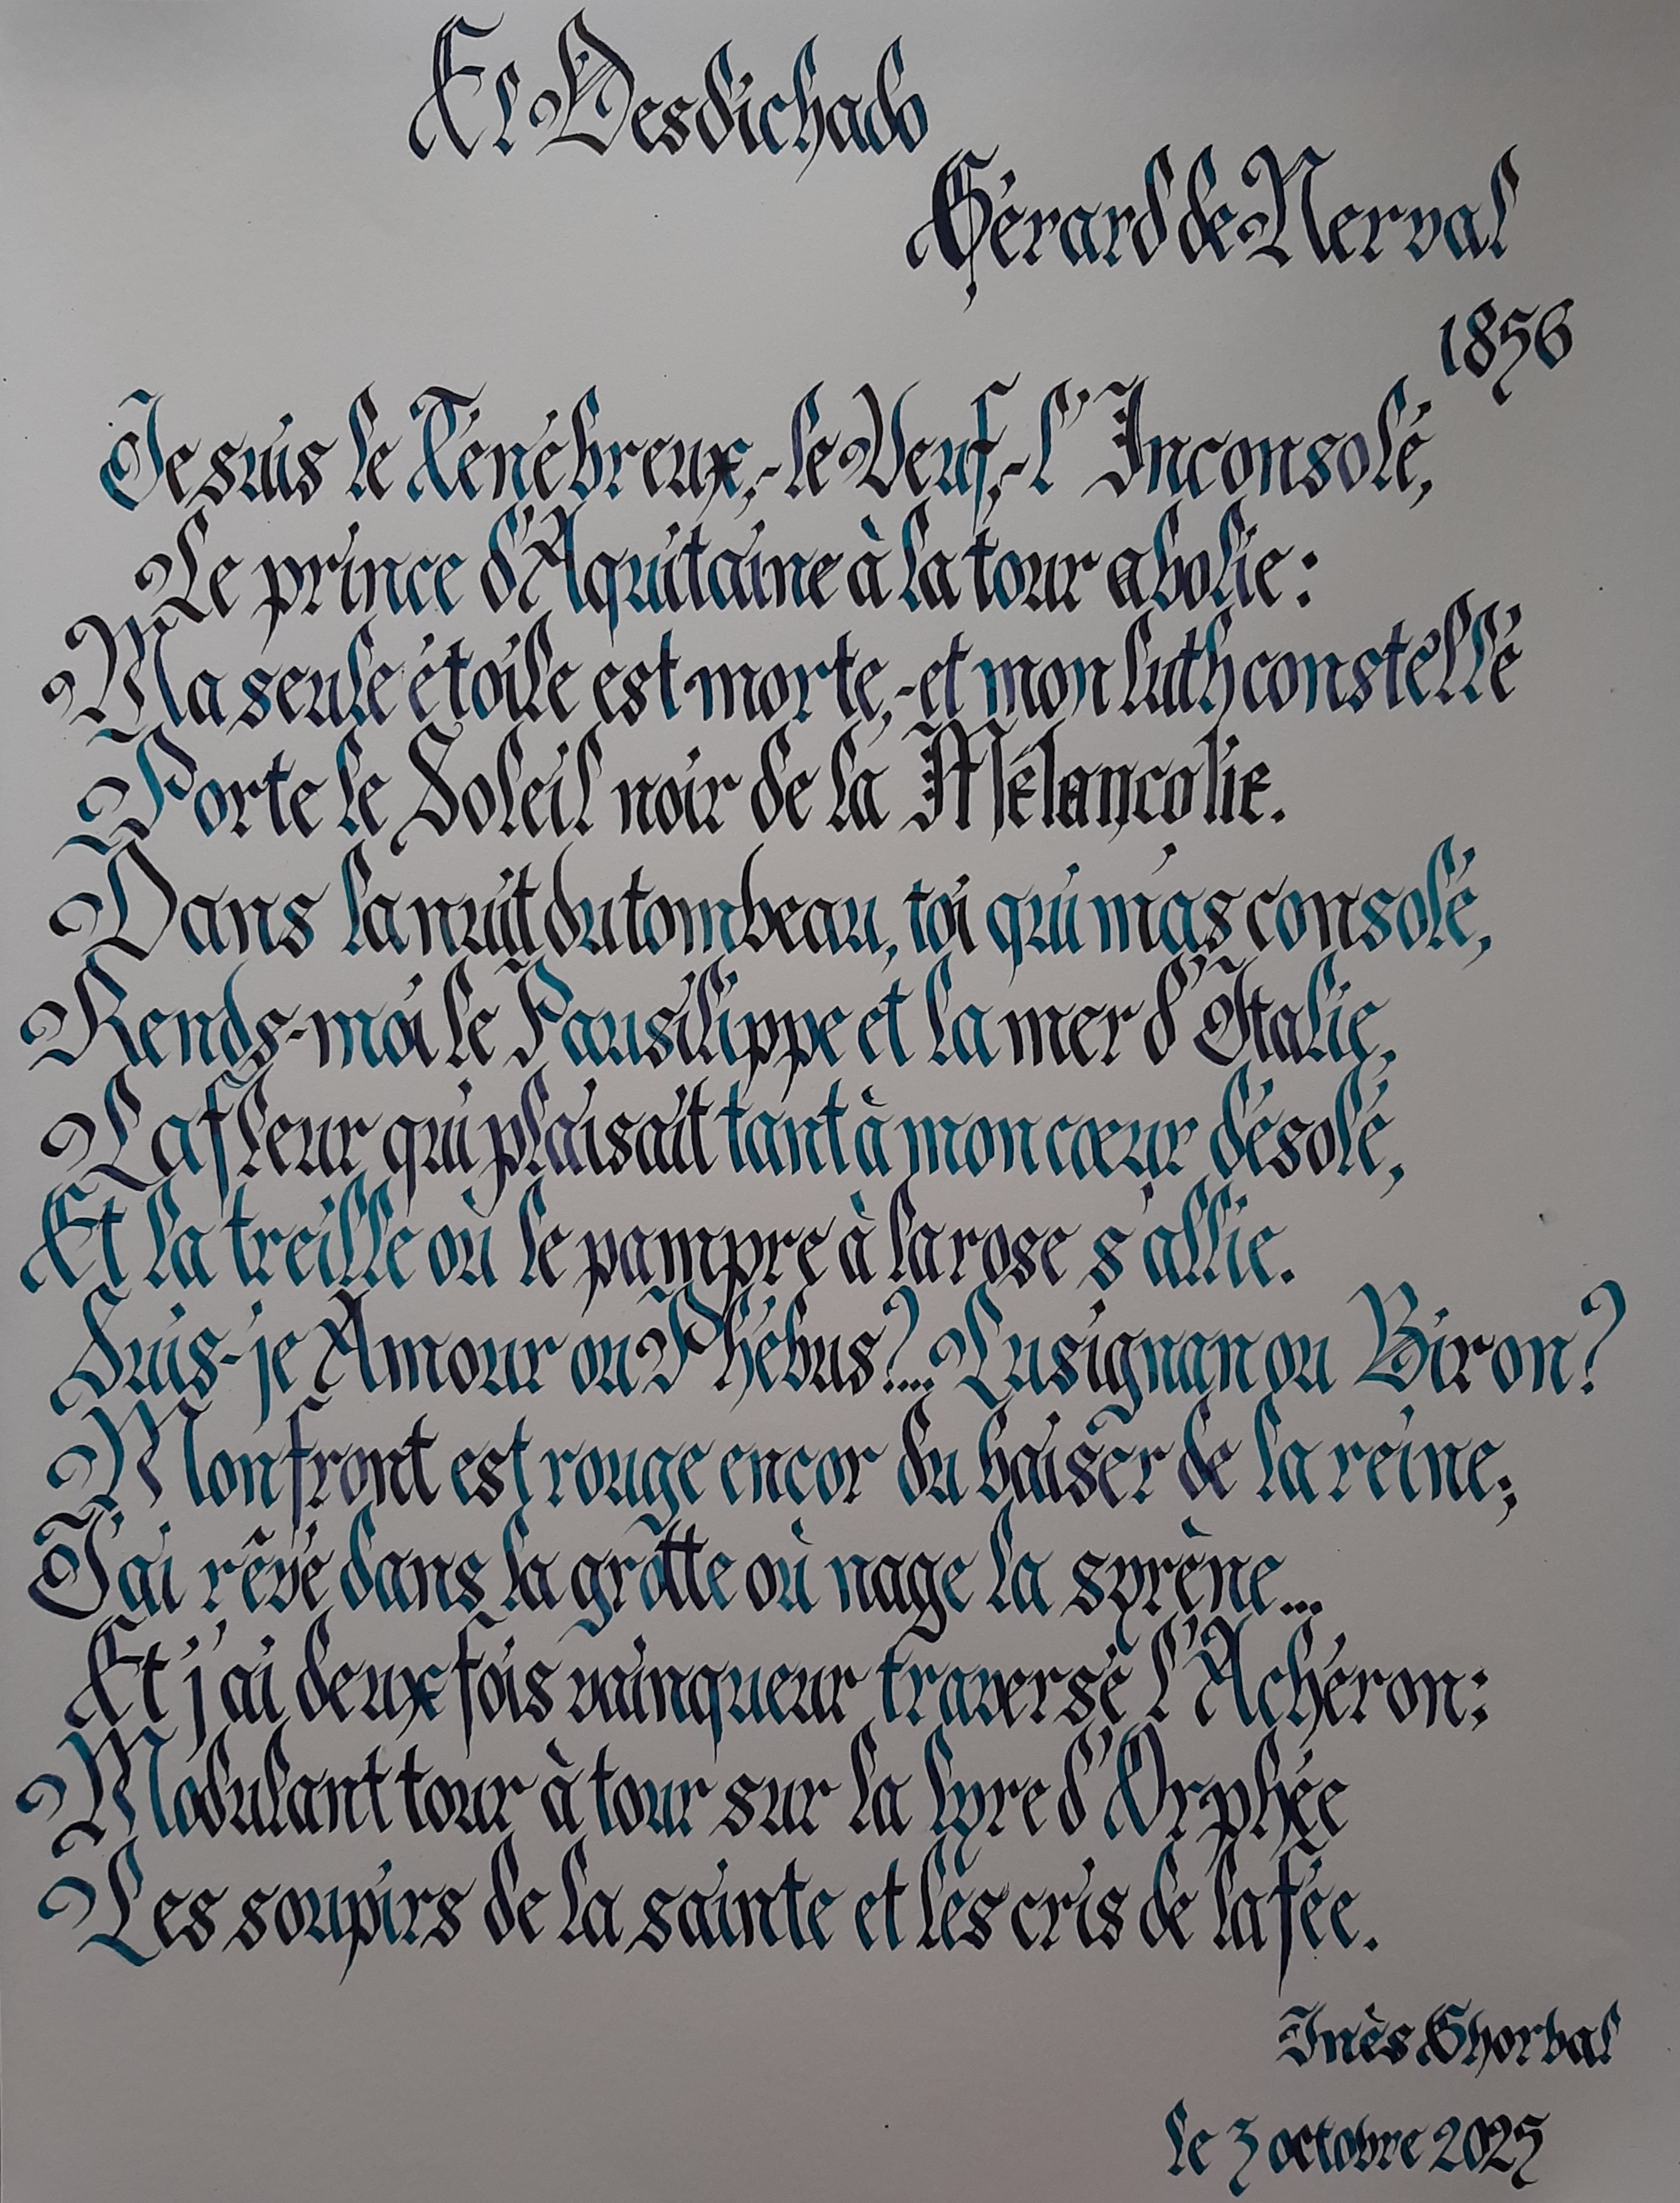 El Desdichado
Gérard de Nerval
1856
Je suis le Ténébreux,-le Veuf,-l'Inconsolé,
Le prince d'Aquitaine à la tour abolie:
Ma seule étoile est morte,-et mon luth constellé
Porte le Soleil noir de la Mélancolie.
Dans la nuit du tombeau, toi qui m'as consolé,
Rends-moi le Pausilippe et la mer d'Italie,
La fleur qui plaisait tant à mon cœur désolé,
Et la treille où le pampre à la rose s'allie.
Suis-je Amour ou Phébus?... Lusignan ou Biron?
Mon front est rouge encor du baiser de la reine;
J'ai rêvé dans la grotte où nage la syrène...
Et j'ai deux fois vainqueur traversé l'Achéron:
Modulant tour à tour sur la lyre d'Orphée
Les soupirs de la sainte et les cris de la fée.
Inès Ghorbal
le 3 octobre 2025